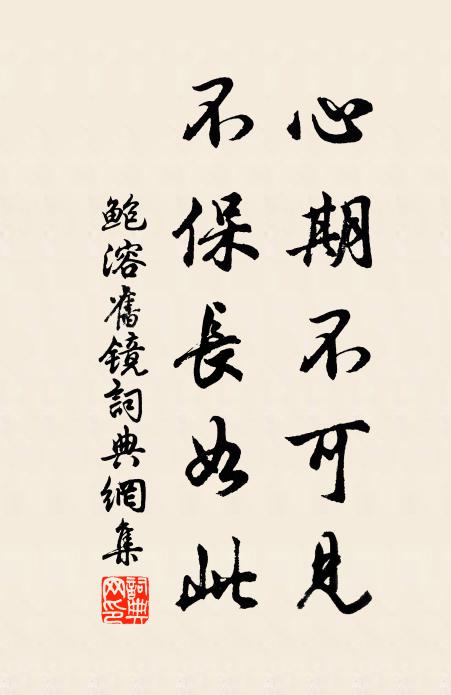 心期不可見
不保長如此
鮑溶舊镜詞典網集
詞典网印